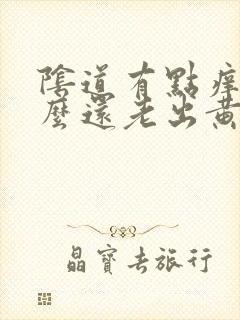 陰道有點痒
麼還老出黃
晶寶去旅行